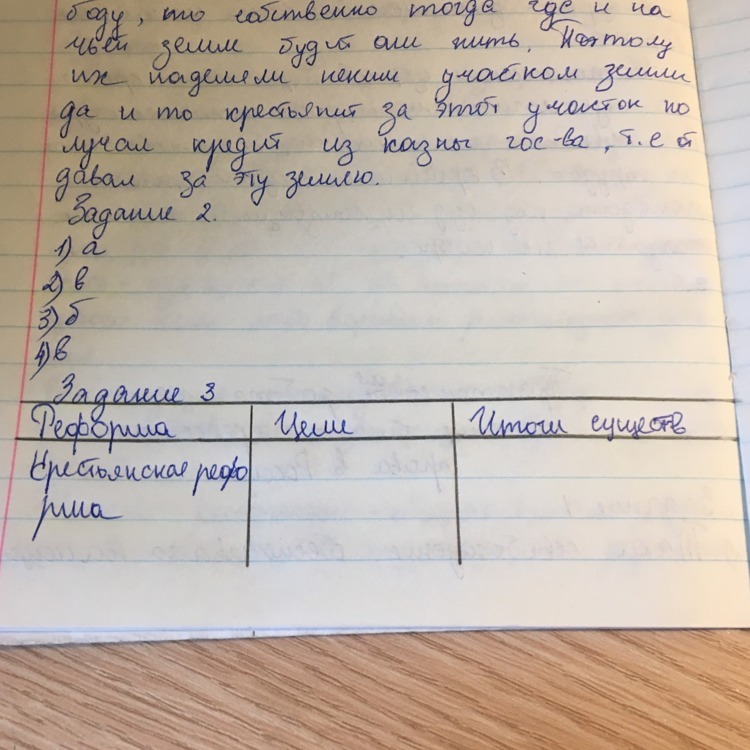 боду, то собственно тогда где и на
чьей земле будут они жить. Поэтому
их наделяли неким участком земли
да и то крестьянин за этот участок по
лучал кредит из казны гос-ва, т.е от
давал за эту землю.
Задание 2.
1) а
2) в
3) б
4) в
Задание 3
Реформа Цели Итоги существ
Крестьянская рефо
рма